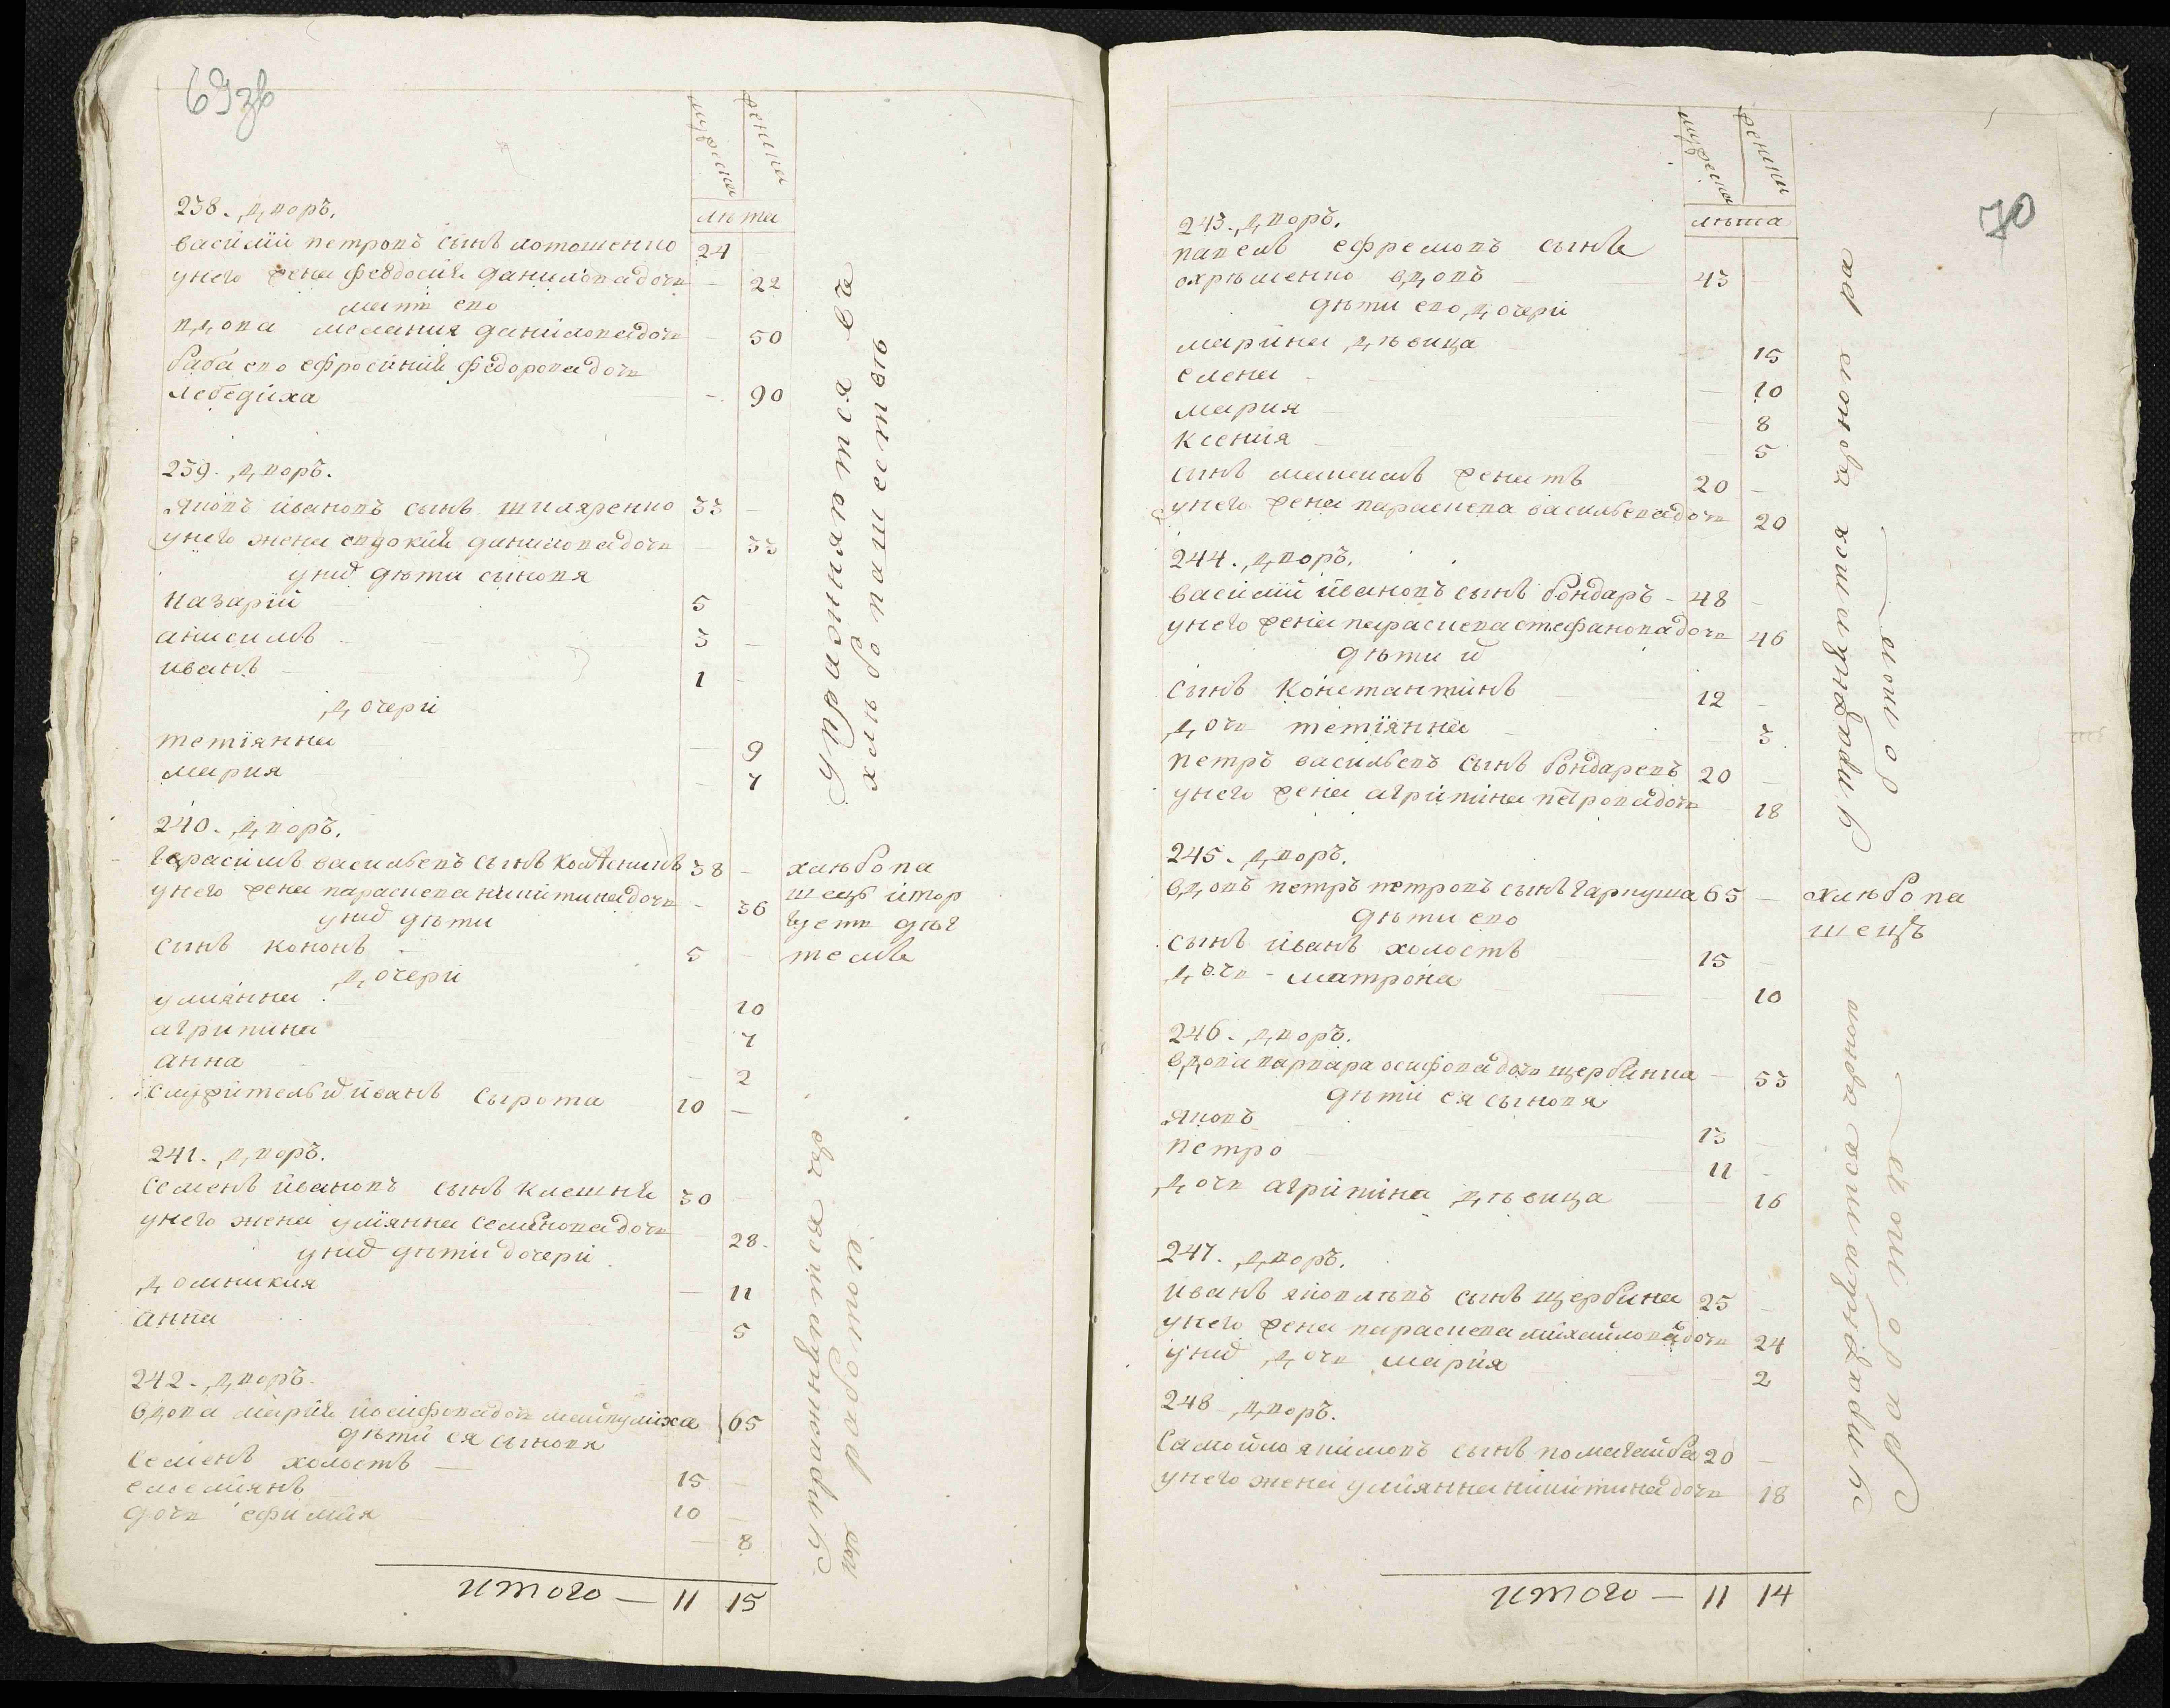 69зв
мужеска
женска
лѣта
238. дворъ.
василїй петровъ сынъ лотошенко 24
унего жена феодосия данилова дочь - 22
мать его
вдова мелания данилова дочь - 50
баба его ефросиния федорова дочь
лебедиха - 90
239. дворъ.
яковъ ивановъ сынъ шкляренко 33 -
унего жена евдокия данилова дочь - 33
уних дѣти сыновя
назарий 5
анисимъ - 3 -
иванъ - 1 -
дочери
тетїянна - 9
мария - 7
упражняются въ
хлѣбопашествѣ
240. дворъ.
герасимъ васильевъ сынъ 38 -
унего жена параскева никитина дочь - 36
уних дѣти
сынъ кононъ - 5 -
дочери
улиянна 10
агрипина 7
анна - 2
служитель их иванъ сырота 10 -
хлѣбопа
шецъ итор
гуетъ дег
темъ
241. дворъ.
семенъ ивановъ сынъ клешня 30
унего жена улїянна семенова дочь - 28.
уних дѣти дочери
домникия - 11
анна 5
242. дворъ.
вдова мария иосифова дочь 65
дѣти ея сыновя
семенъ холостъ - 15 -
емелиянъ - 10
дочь ефимия - 8
упражнуются чор
но работой
итого - 11 15
70
мужеска
женска
лѣта
243. дворъ.
павелъ ефремовъ сынъ
охрѣменко вдовъ - 43 -
дѣти его дочери
марина дѣвица 15
елена - 10
мария - 8
ксения - 5
сынъ максимъ женатъ 20 -
унего жена параскева васильева дочь 20
244. дворъ.
василїй ивановъ сынъ бондаръ - 48 -
унего жена параскева стефанова дочь 46
дѣти их
сынъ константинъ 12 -
дочь тетїянна - 3
петръ васильевъ сынъ бондаревъ 20 -
унего жена агрипина петрова дочь 18
упражнуются чорною ра
ботою
245. дворъ.
вдовъ петръ петровъ сынъ гаркуша 65 -
дѣти его
сынъ иванъ холостъ 15 -
дочь - матрона - 10
хлѣбопа
шецъ
246. дворъ.
вдова варвара осифова дочь щербинка - 53
дѣти ея сыновя
яковъ 13 -
петро - 11 -
дочь агрипина дѣвица - 16
247. дворъ.
иванъ яковлѣвъ сынъ щербина 25 -
унего жена параскева михайлова дочь 24
уних дочь мария 2
248 дворъ.
самойло якимовъ сынъ помагайба 20 -
унего жена улиянна никитина дочь 18
упражнуются чорною
работою
итого - 11 14